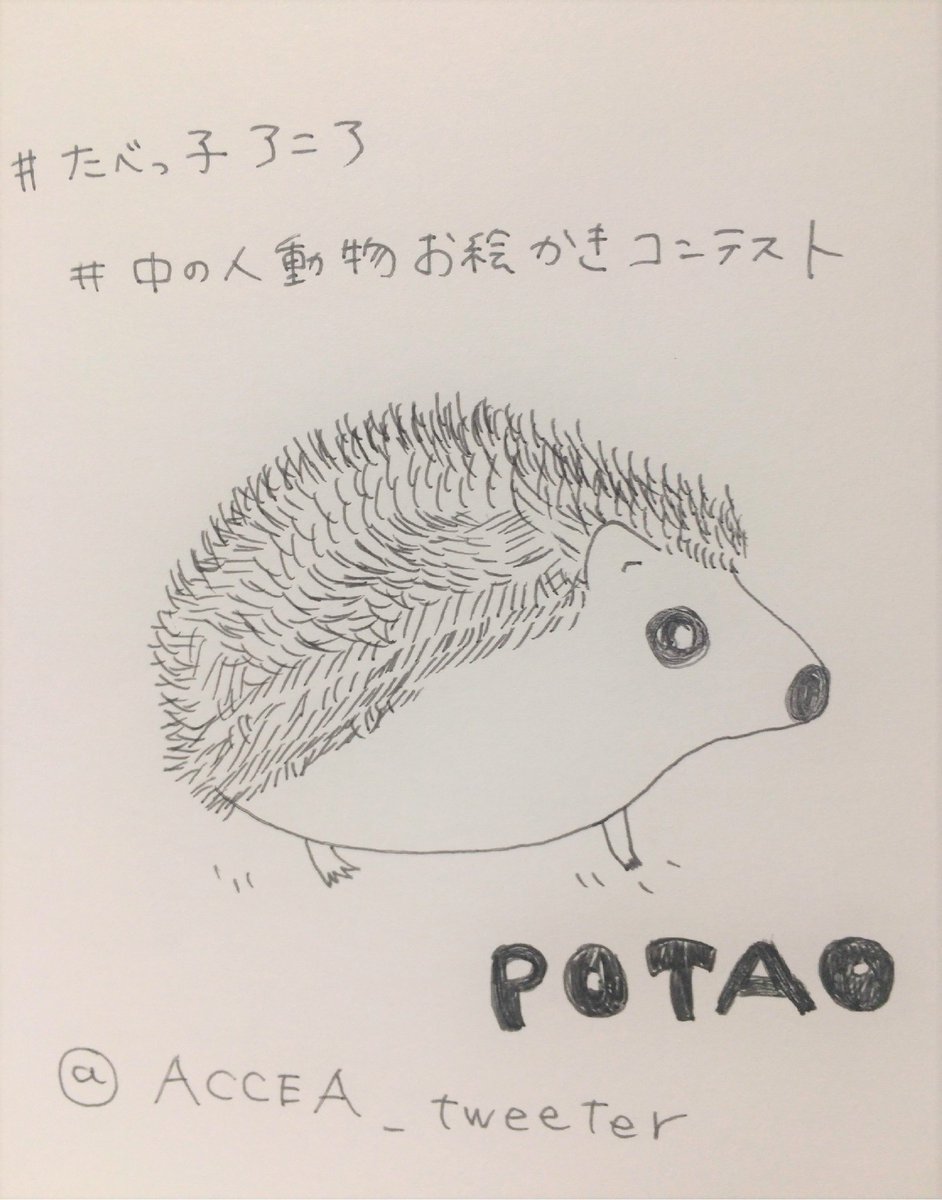 #たべっ子アニア
#中の人動物お絵かきコンテスト
POTAO
@ACCEA_tweeter